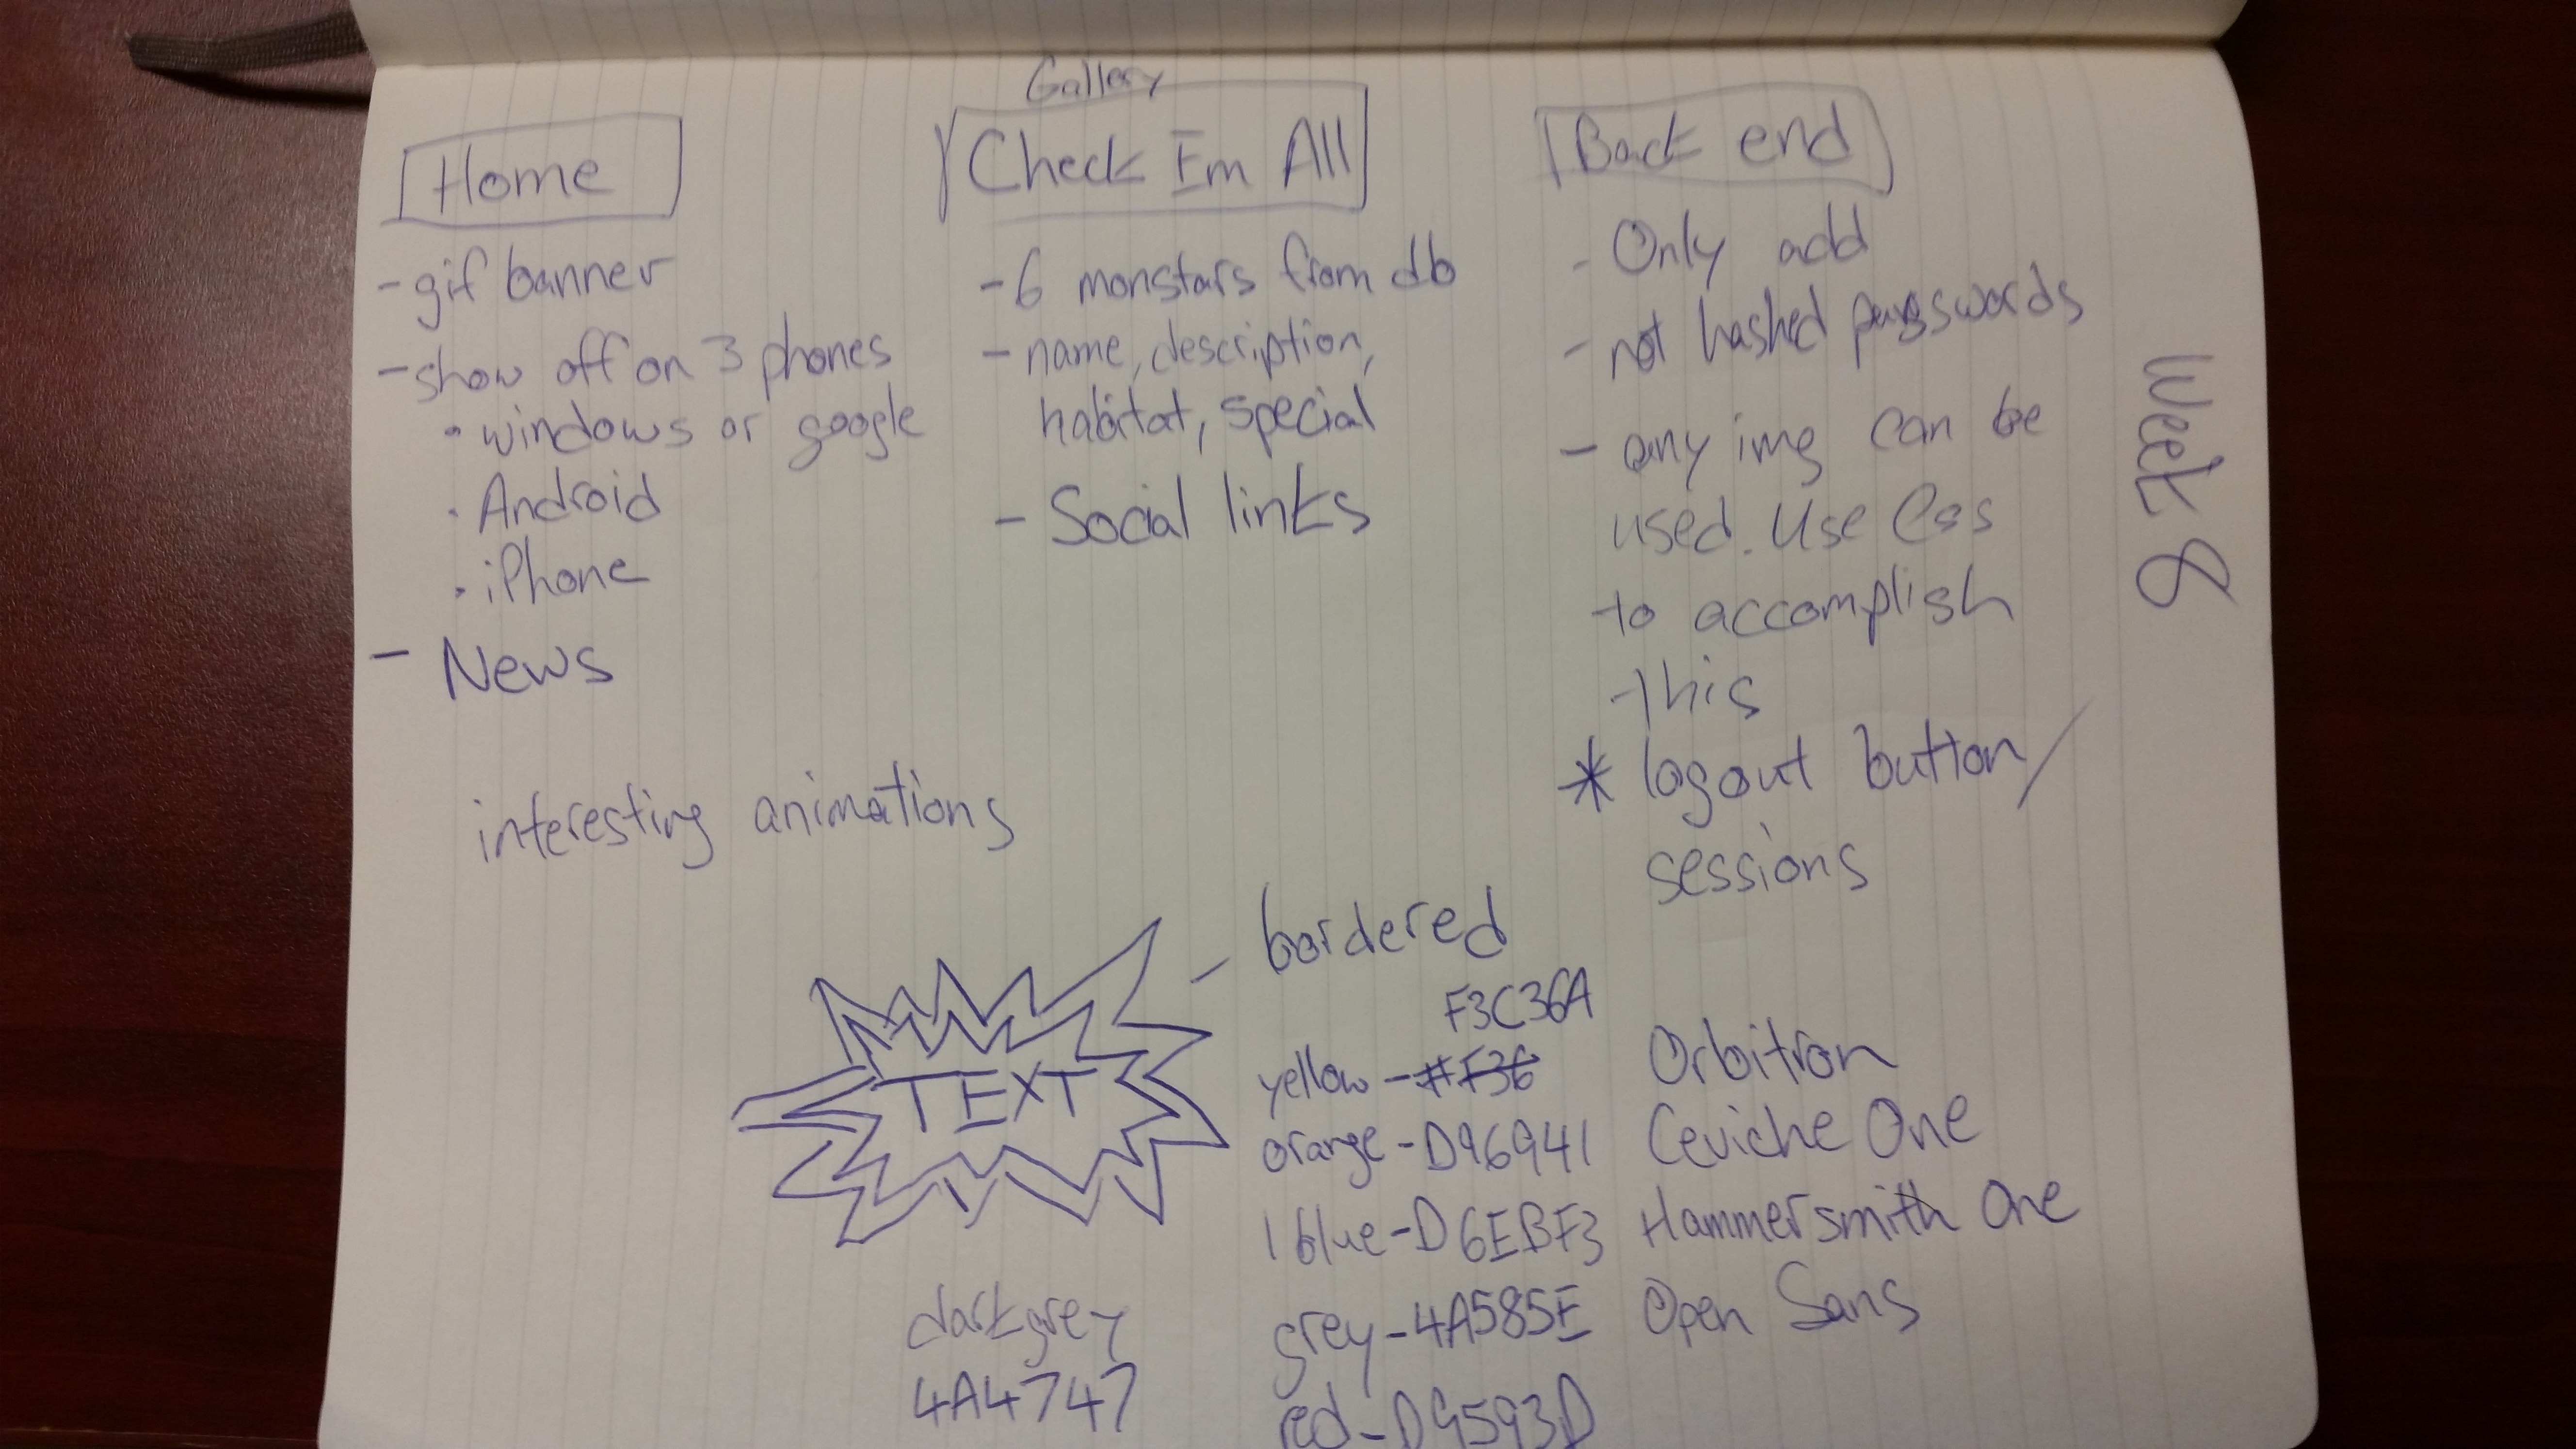 Home
- gif banner
- show off on 3 phones
• windows or google
• Android
• iPhone
- News
interesting animations
Gallery
Check Em All
- 6 monstars from db
- name, description,
habitat, special
- Social links
Back end
- Only add
- not hashed passwords
- any img can be
used. Use Css
to accomplish
this
* logout button/
sessions
Week 8
TEXT
- bordered
F3C36A
yellow - #F36
orange - D96941
l blue - D6EBF3
grey - 4A585E
red - D9593D
dark grey
4A4747
Orbitron
Ceviche One
Hammersmith One
Open Sans